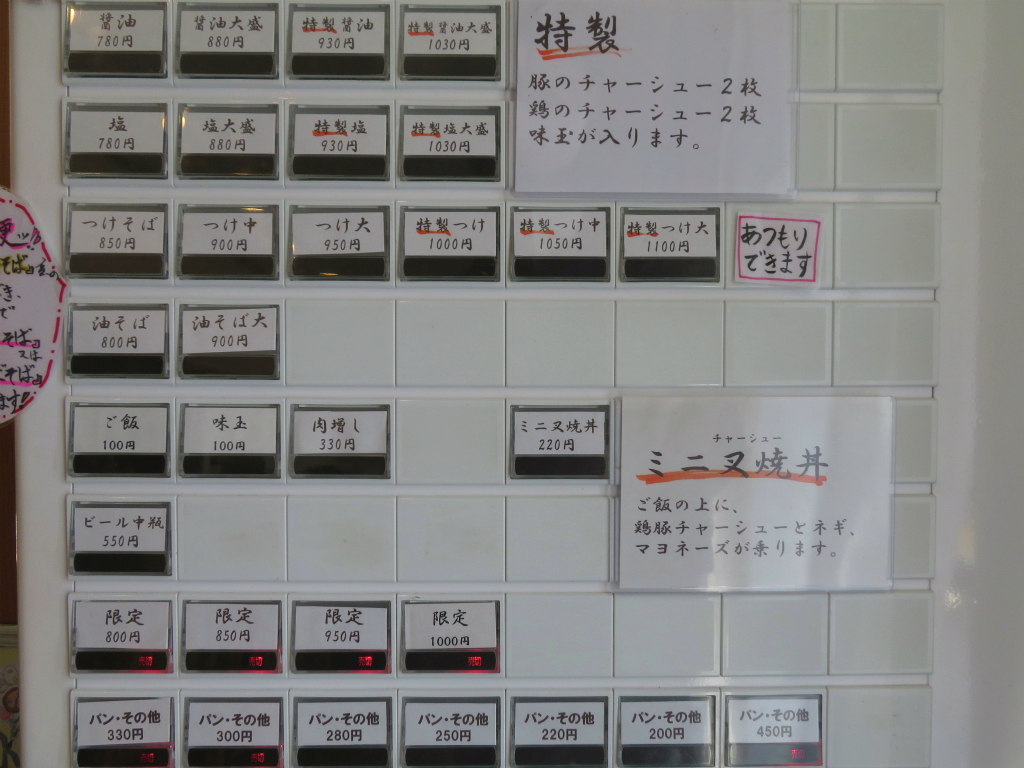 醤油
780円
醤油大盛
880円
特製醤油
930円
特製醤油大盛
1030円
特製
豚のチャーシュー2枚
鶏のチャーシュー2枚
味玉が入ります。
塩
780円
塩大盛
880円
特製塩
930円
特製塩大盛
1030円
つけそば
850円
つけ中
900円
つけ大
950円
特製つけ
1000円
特製つけ中
1050円
特製つけ大
1100円
あつもり
できます
油そば
800円
油そば大
900円
ご飯
100円
味玉
100円
肉増し
330円
ミニ叉焼丼
220円
チャーシュー
ミニ叉焼丼
ご飯の上に、
鶏豚チャーシューとネギ、
マヨネーズが乗ります。
ビール中瓶
550円
限定
800円
売切
限定
850円
売切
限定
950円
売切
限定
1000円
売切
パン・その他
330円
売切
パン・その他
300円
売切
パン・その他
280円
パン・その他
250円
パン・その他
220円
パン・その他
200円
パン・その他
450円
売切